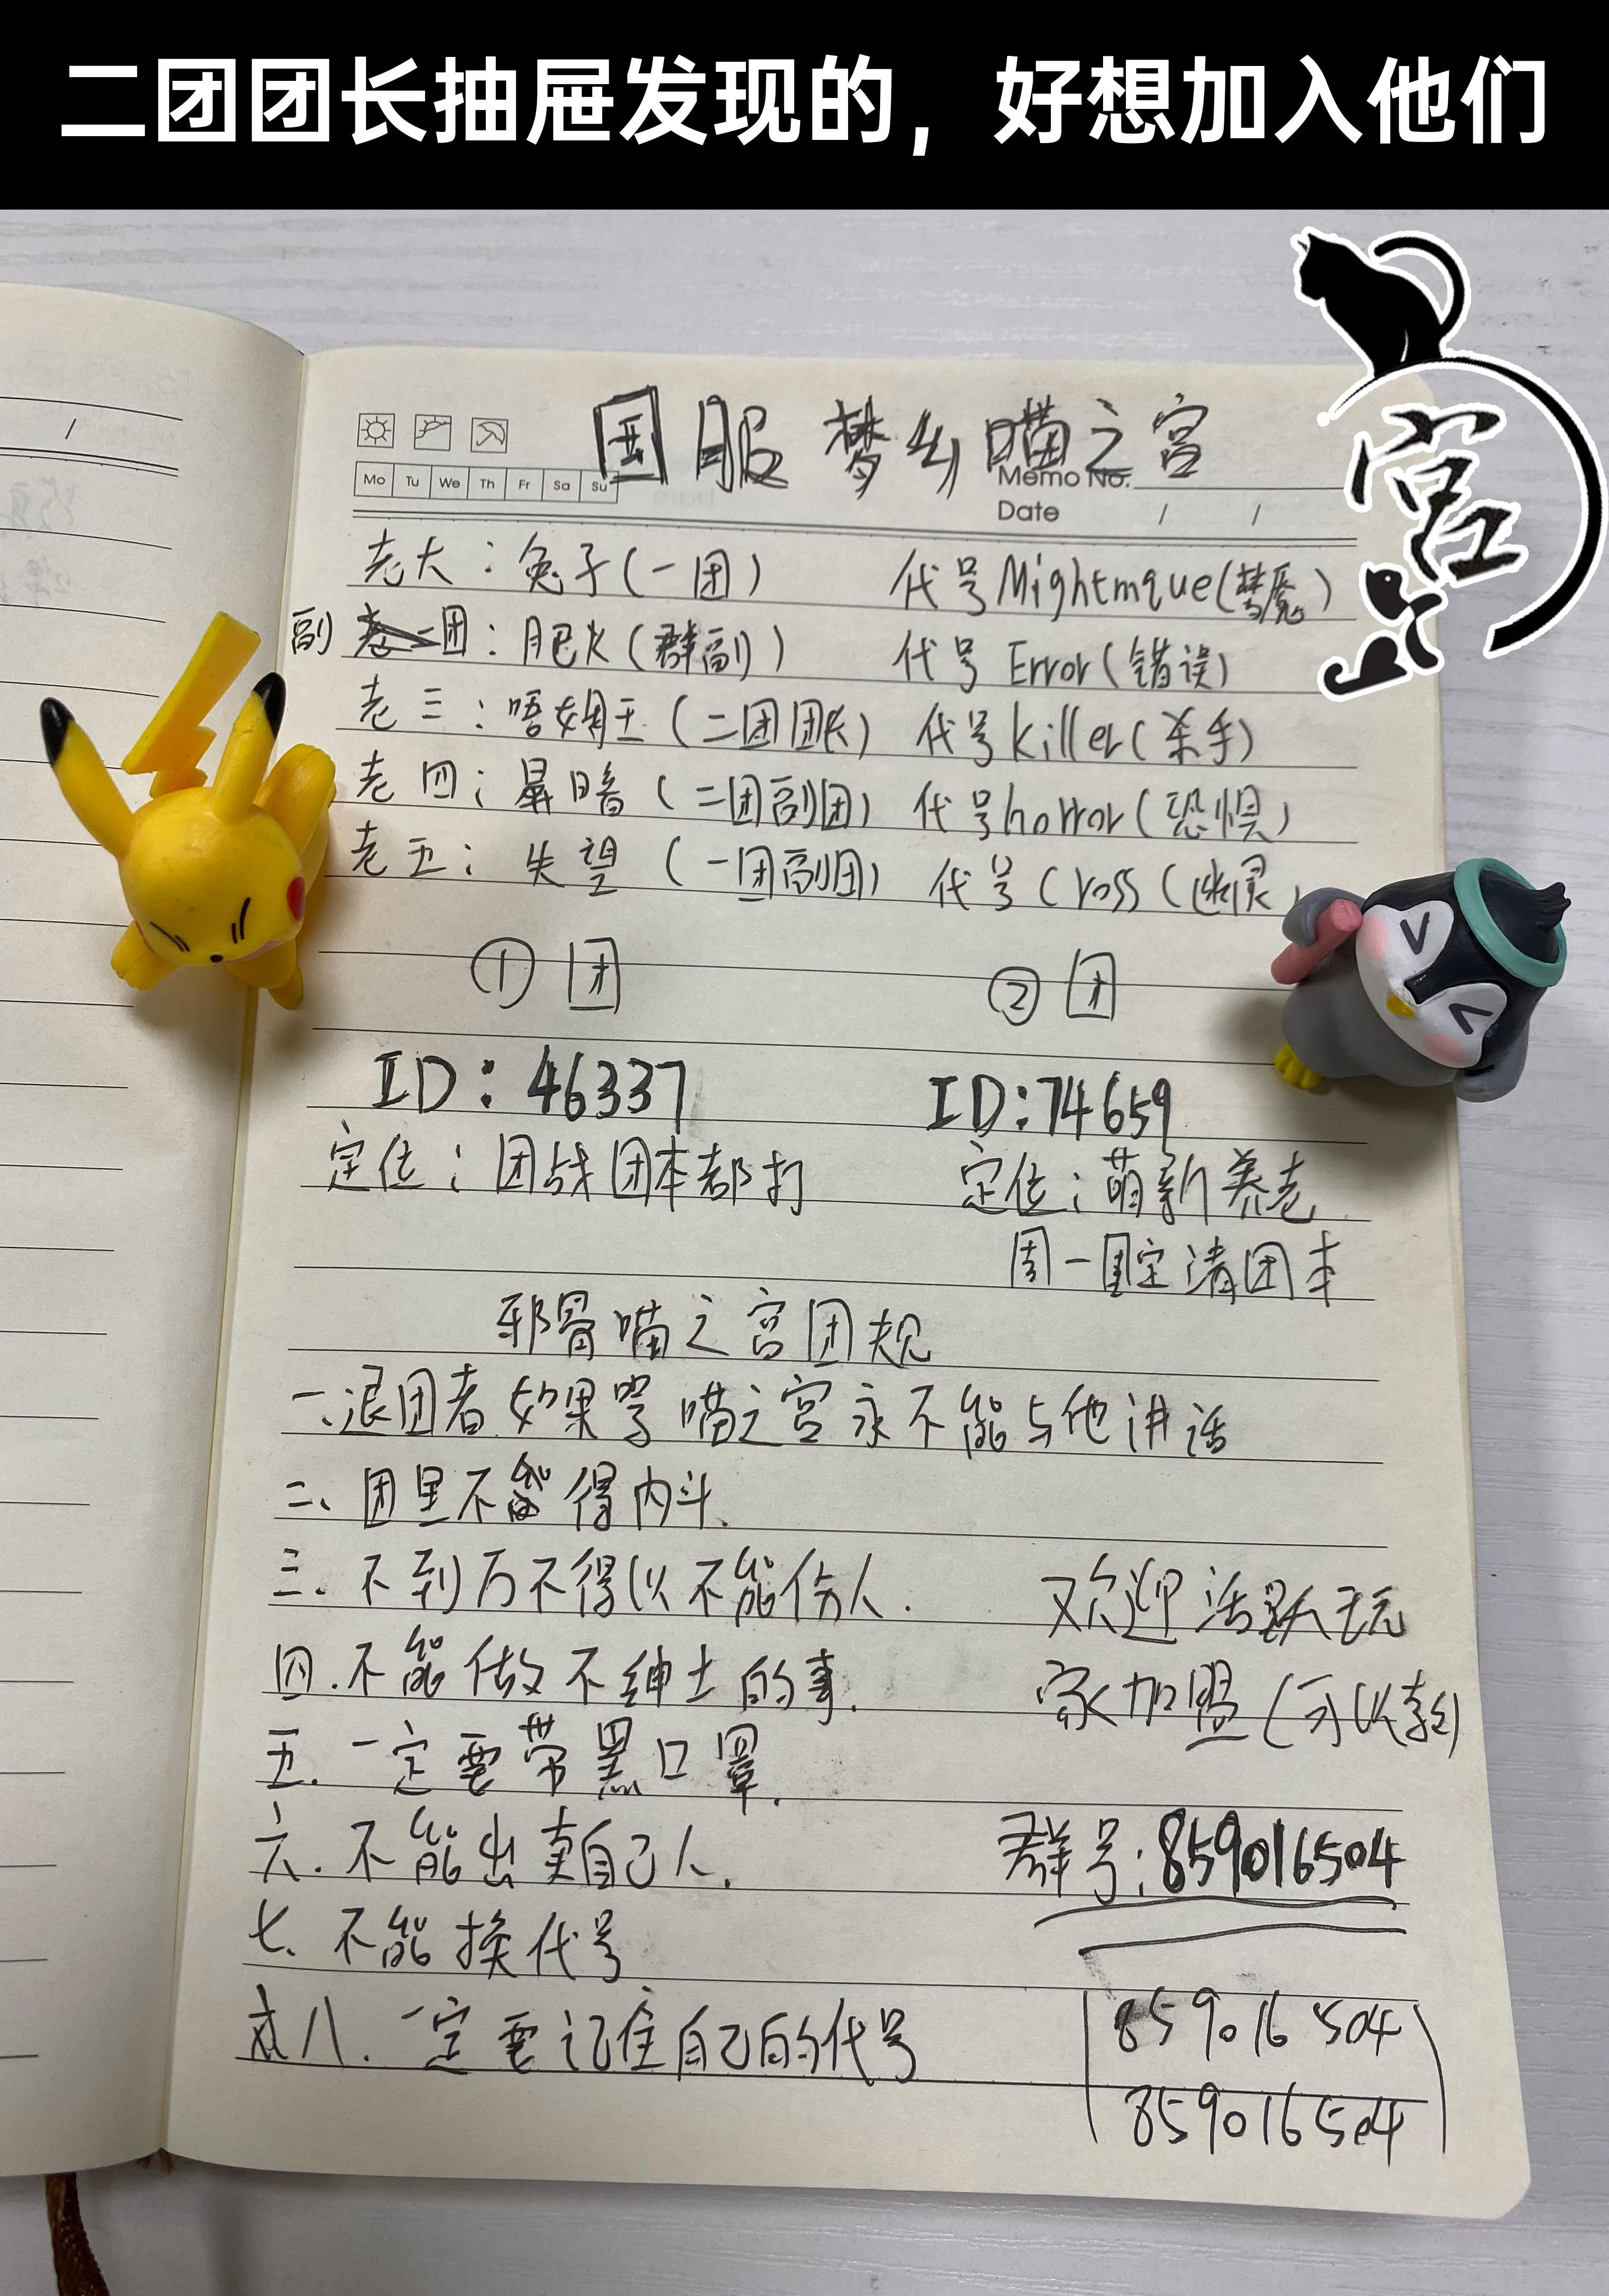 二团团长抽屉发现的，好想加入他们
宫
国服 梦幻喵之宫
Mo Tu We Th Fr Sa Su
Memo No.
Date / /
老大：兔子（一团） 代号Mightmque(梦魇)
副团：肥火（群副） 代号Error(错误)
老三：唔姻王（二团团长） 代号killer(杀手)
老四：暴暗（二团副团） 代号horror(恐惧)
老五：失望（一团副团） 代号Cross(幽灵)
①团 ②团
ID：46337 ID:74659
定位：团战团本都打 定位：萌新养老
周一固定清团本
邪骨喵之宫团规
一、退团者如果骂喵之宫永不能与他讲话
二、团里不得内斗.
三.不到万不得以不能伤人.
四.不能做不绅士的事.
五.一定要带黑口罩.
六.不能出卖自己人.
七、不能换代号
八.一定要记住自己的代号
欢迎活跃玩
家加盟（可以亲）
群号:859016504
859016504
859016504